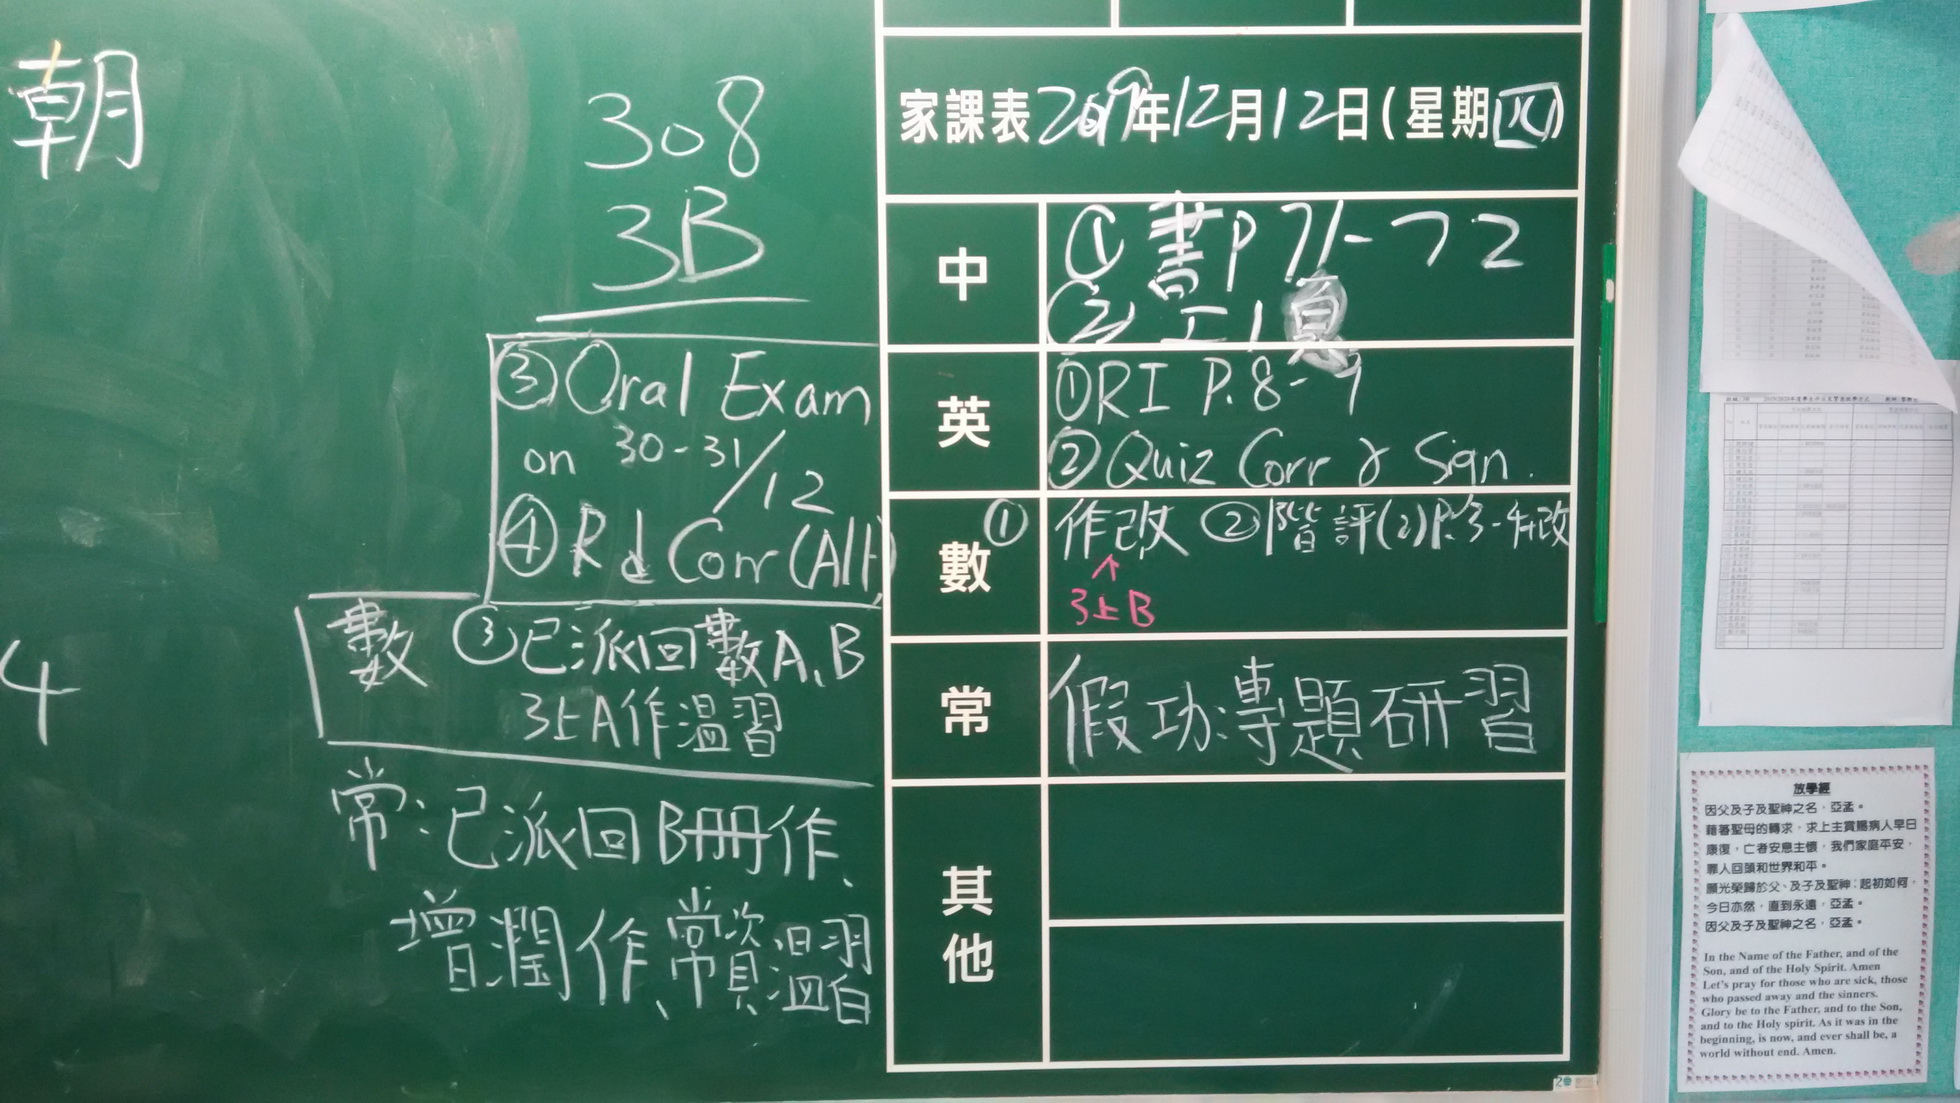 朝
4
308
3B
③ Oral Exam
on 30-31/12
④ Rd Corr (Alt)
數 ③已派回數A、B
3上A作溫習
常：已派回B冊作、
增潤作、常資溫習
家課表2019年12月12日(星期四)
中
① 書P71-72
② 工1頁
英
①RI P.8-9
②Quiz Corr & Sign.
數
① 作改 ②階評(2)P.3-4改
3上B
常
假功：專題研習
其他
放學經
因父及子及聖神之名，亞孟。
藉著聖母的轉求，求上主賞賜病人早日
康復，亡者安息主懷，我們家庭平安，
罪人回頭和世界和平。
願光榮歸於父、及子及聖神；起初如何，
今日亦然，直到永遠，亞孟。
因父及子及聖神之名，亞孟。
In the Name of the Father, and of the
Son, and of the Holy Spirit. Amen
Let's pray for those who are sick, those
who passed away and the sinners.
Glory be to the Father, and to the Son,
and to the Holy spirit. As it was in the
beginning, is now, and ever shall be, a
world without end. Amen.